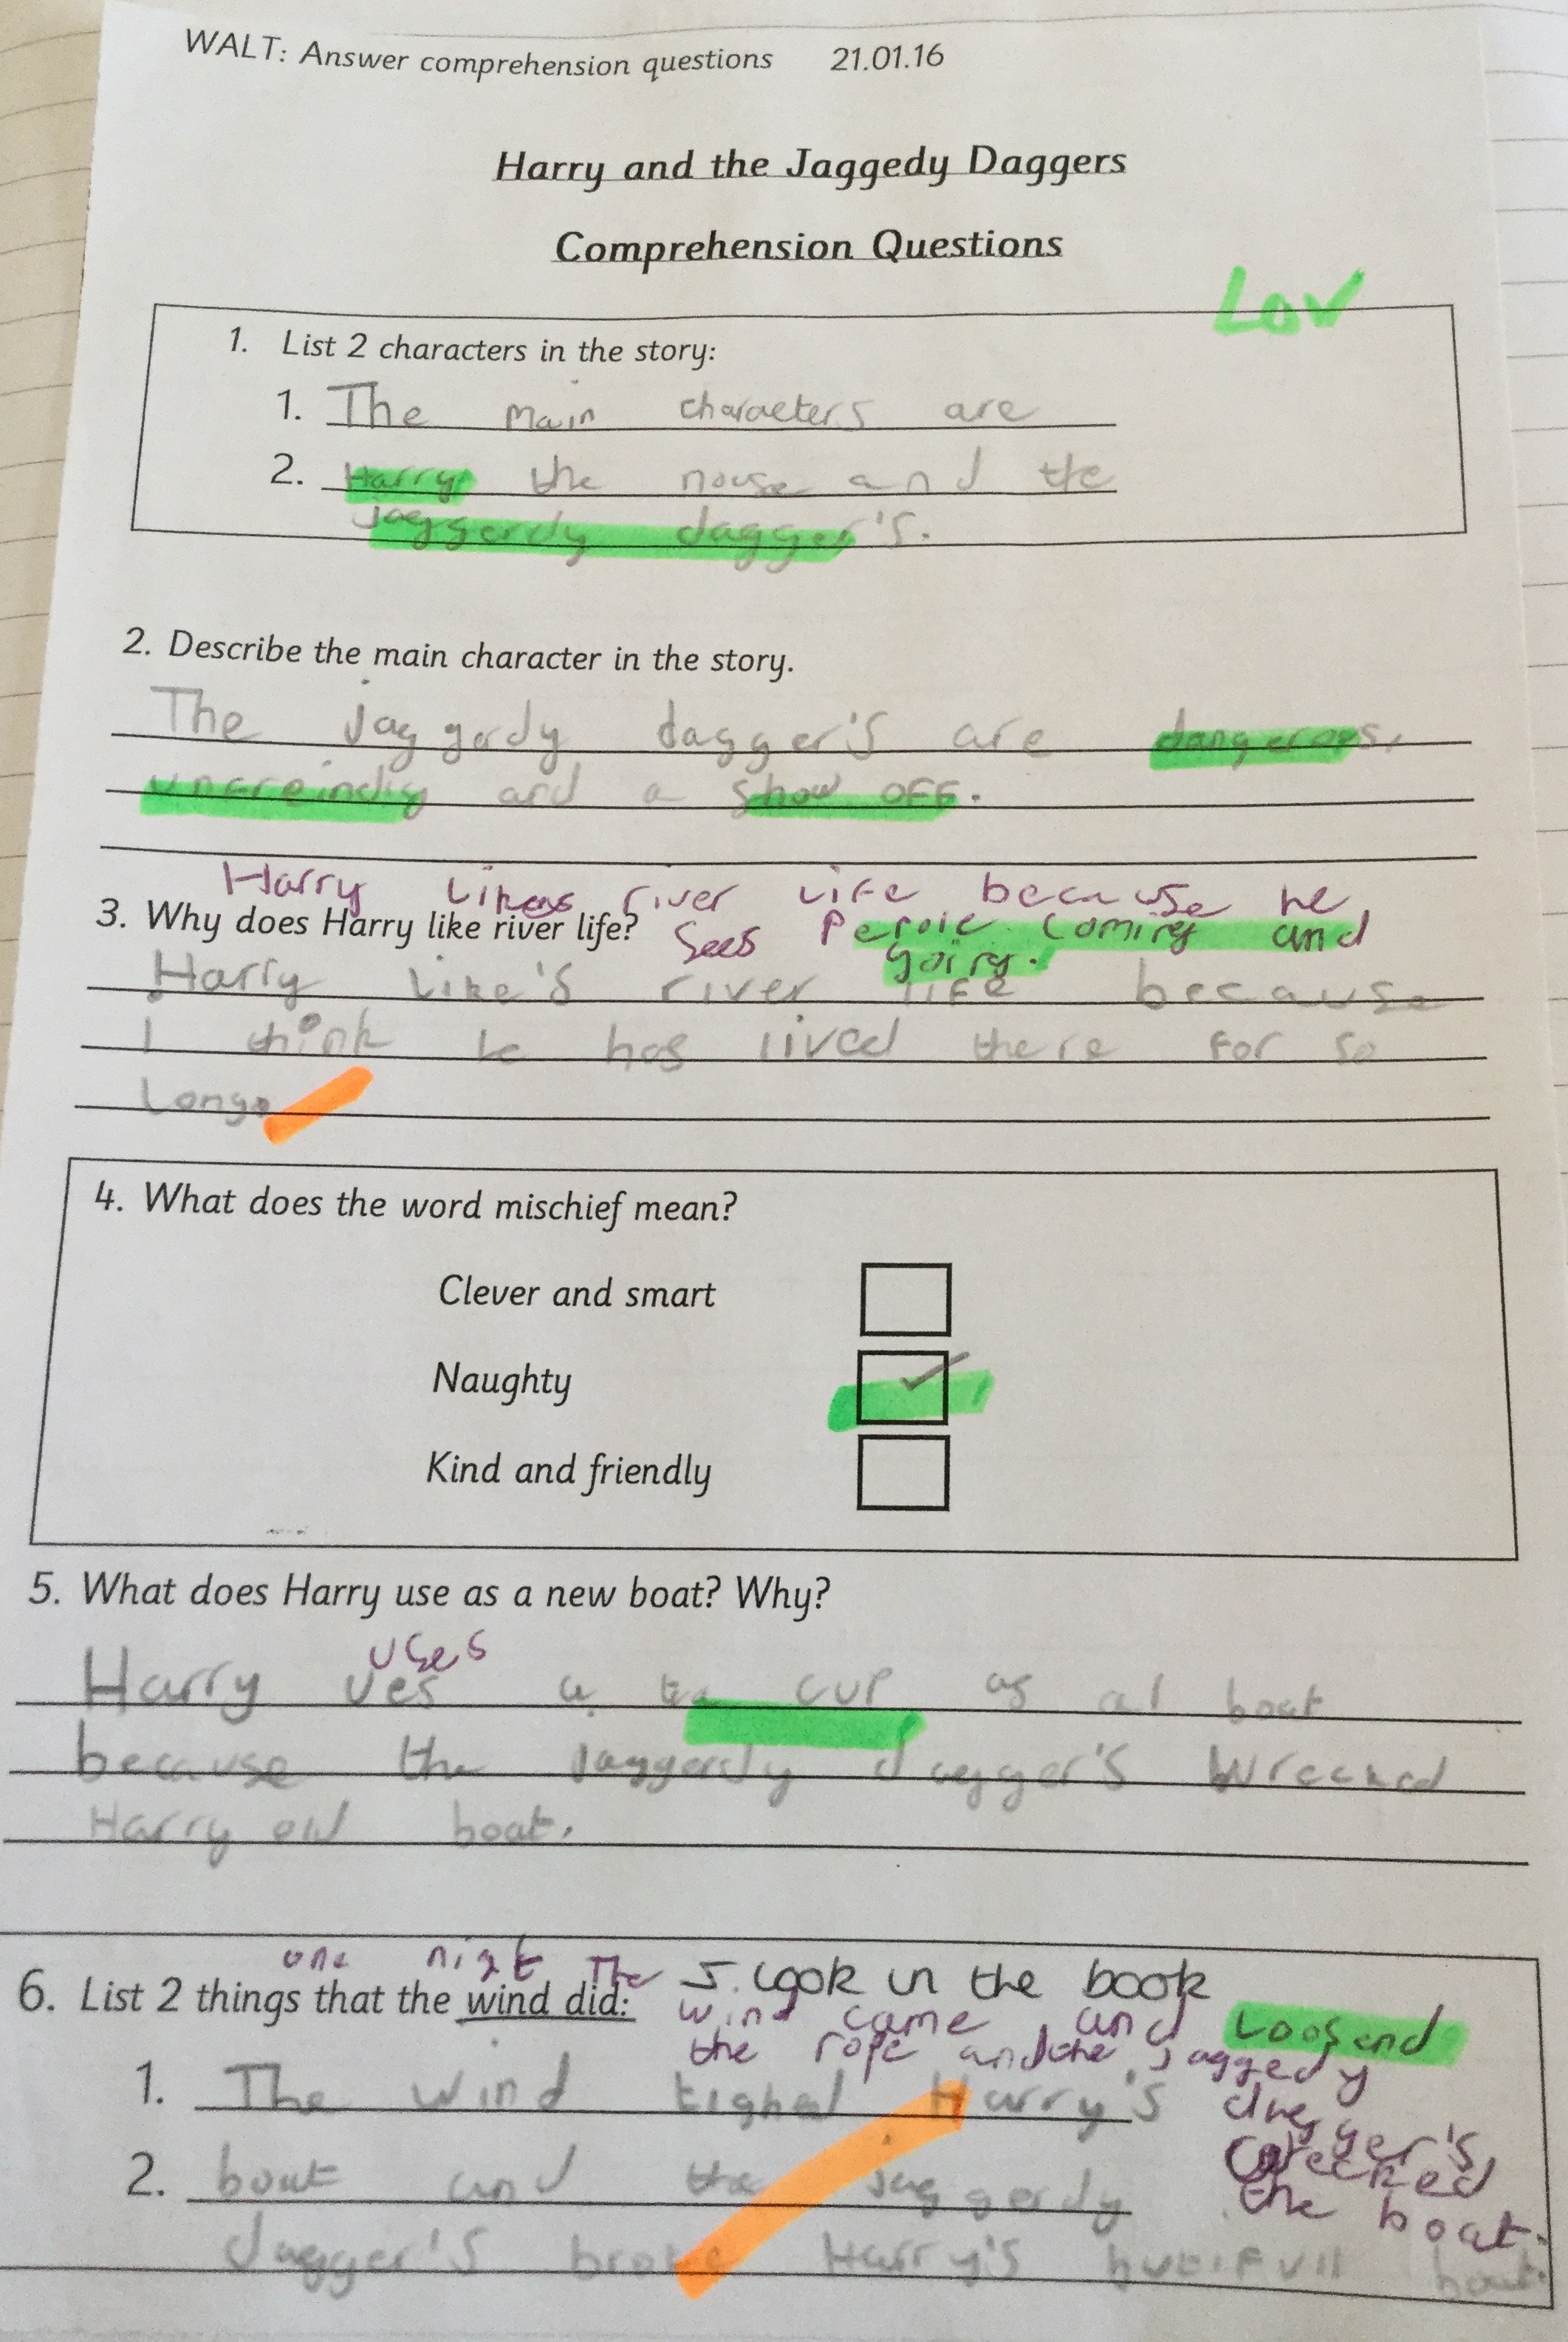 WALT: Answer comprehension questions 21.01.16
Harry and the Jaggedy Daggers
Comprehension Questions
1. List 2 characters in the story:
1. The main characters are
2. Harry the mouse and the
jaggerdy dagger's.
2. Describe the main character in the story.
The jaggerdy dagger's are dangeroos,
unfreindly and a show off.
Harry likes river life because he
3. Why does Harry like river life? sees people coming and
going.
Harry like's river life because
I think he has lived there for so
long.
4. What does the word mischief mean?
Clever and smart
Naughty
Kind and friendly
5. What does Harry use as a new boat? Why?
uses
Harry ues a tea cup as a boat
because the jaggerdy dagger's wrecked
Harry old boat.
one night The
6. List 2 things that the wind did: 5. look in the book
wind came and loosend
the rope and the jaggedy
dagger's
wrecked
the boat.
1. The wind Harry's
2. boat and the jaggerdy
dagger's broke Harry's butifull boat.